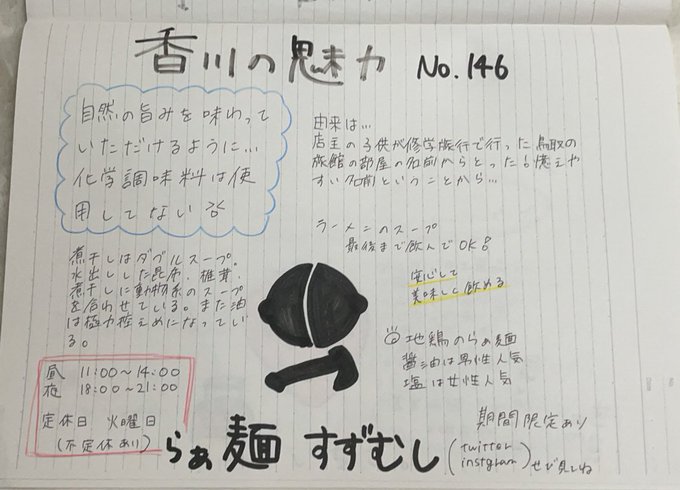 香川の魅力 No.146
自然の旨みを味わって
いただけるように…
化学調味料は使
用してない
由来は…
店主の子供が修学旅行で行った鳥取の
旅館の部屋の名前からとった 憶えや
すい名前ということから…
ラーメンのスープ
最後まで飲んでOK!
煮干しはダブルスープ。
水出しした昆布、椎茸、
煮干しに動物系のスープ
を合わせている。また油
は極力控えめになってい
る。
安心して
美味しく飲める
◎地鶏のらぁ麺
醤油は男性人気
塩は女性人気
昼 11:00〜14:00
夜 18:00〜21:00
定休日 火曜日
(不定休あり)
期間限定あり
らぁ麺 すずむし
(twitter
instgram)ぜひ見てね